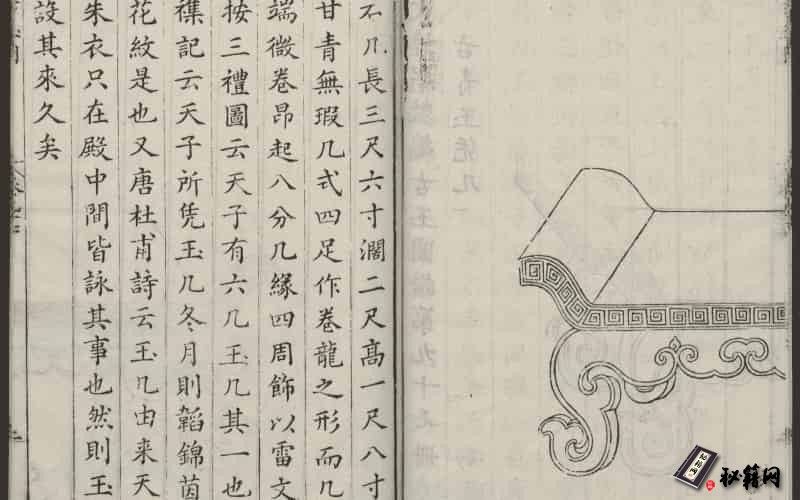 右几長三尺六寸濶二尺高一尺八寸
甘青無瑕几式四足作卷龍之形而几
端微卷昂起八分几緣四周飾以雷文
按三禮圖云天子有六几玉几其一也
襍記云天子所凭玉几冬月則韜錦茵
花紋是也又唐杜甫詩云玉几由來天
朱衣只在殿中間皆詠其事也然則玉
設其來久矣
古周玉凭几
秘籍网